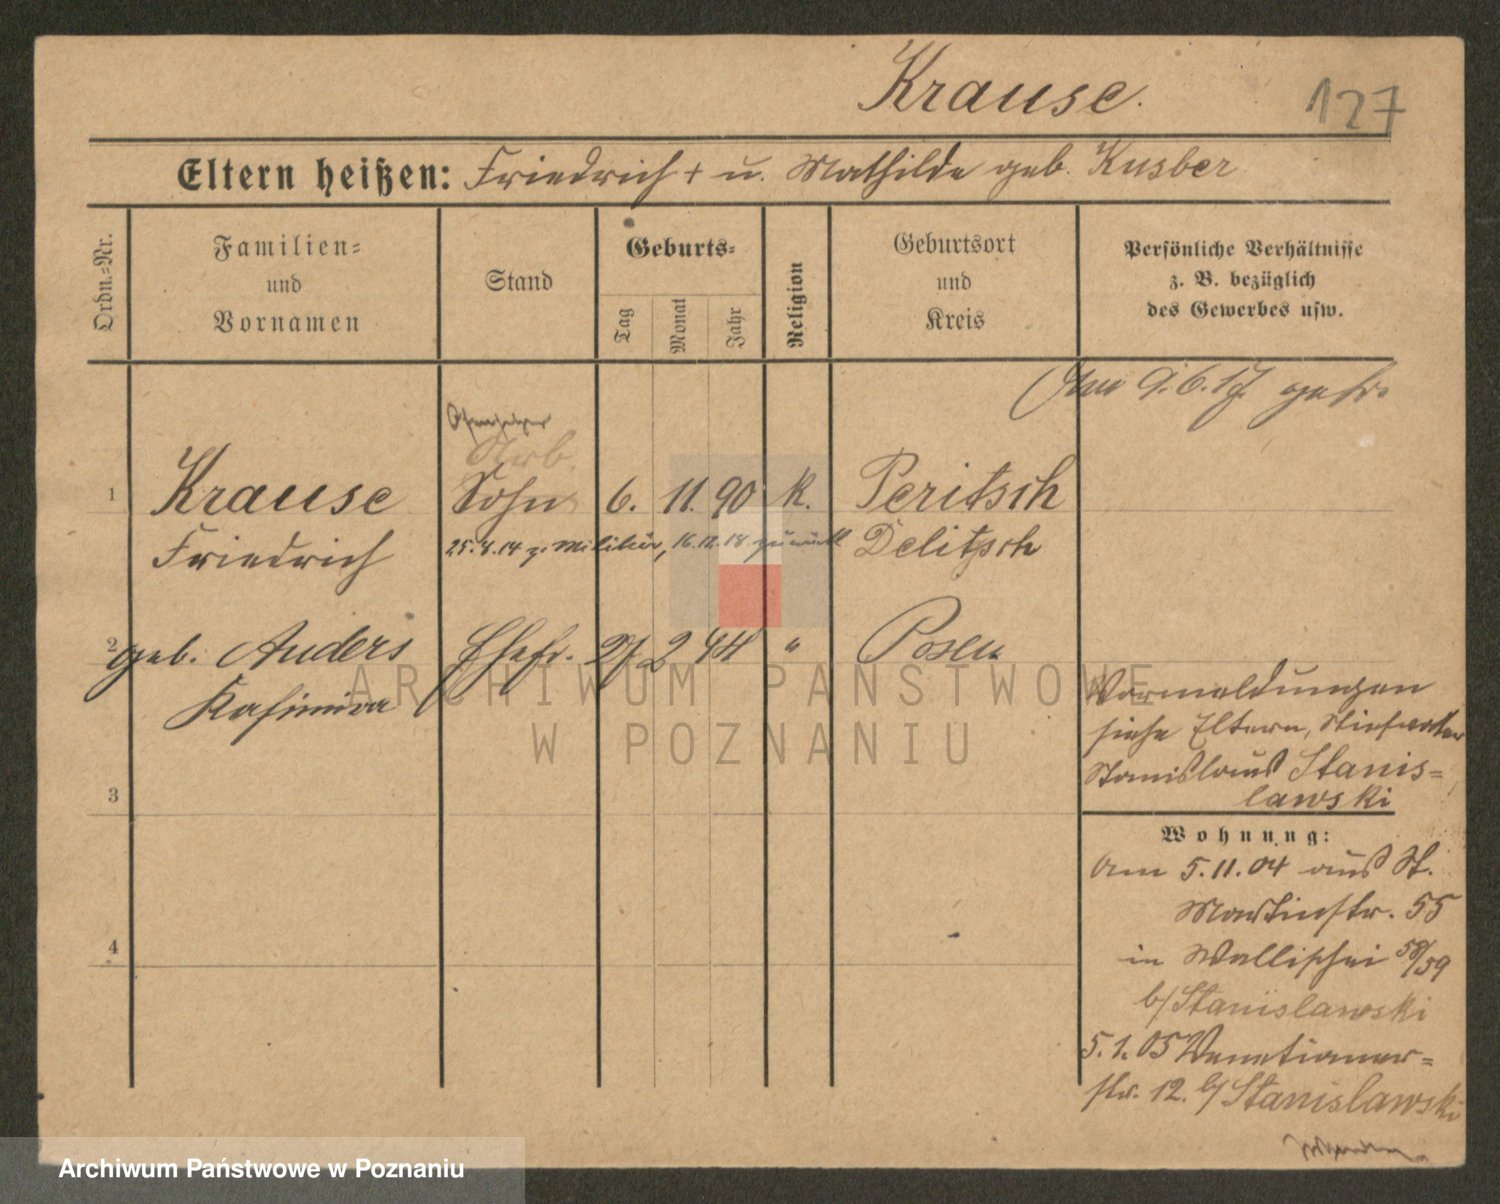 Krause.
127
Eltern heißen: Friedrich + u. Mathilde geb. Kusber
Ordn.-Nr.
Familien-
und
Vornamen
Stand
Geburts-
Tag
Monat
Jahr
Religion
Geburtsort
und
Kreis
Persönliche Verhältnisse
z. B. bezüglich
des Gewerbes usw.
Am 9.6.17. gestr.
Arb.
1 Krause Sohn 6. 11. 90 K. Peritsch
Friedrich 25.8.14 z. Militär, 16.12.18 zurück Delitzsch
2 geb. Anders Ehefr. 27 2 94 " Posen
Kasimira
Vormeldungen
siehe Eltern, Stiefvater
Stanislaus Stanis-
lawski
3
Wohnung:
Am 5.11.04 aus St.
Martinstr. 55
4
in Wallischei 58/59
b/ Stanislawski
5.1.05 Venetianer-
str. 12. b/ Stanislawski
ARCHIWUM PAŃSTWOWE
W POZNANIU
Archiwum Państwowe w Poznaniu